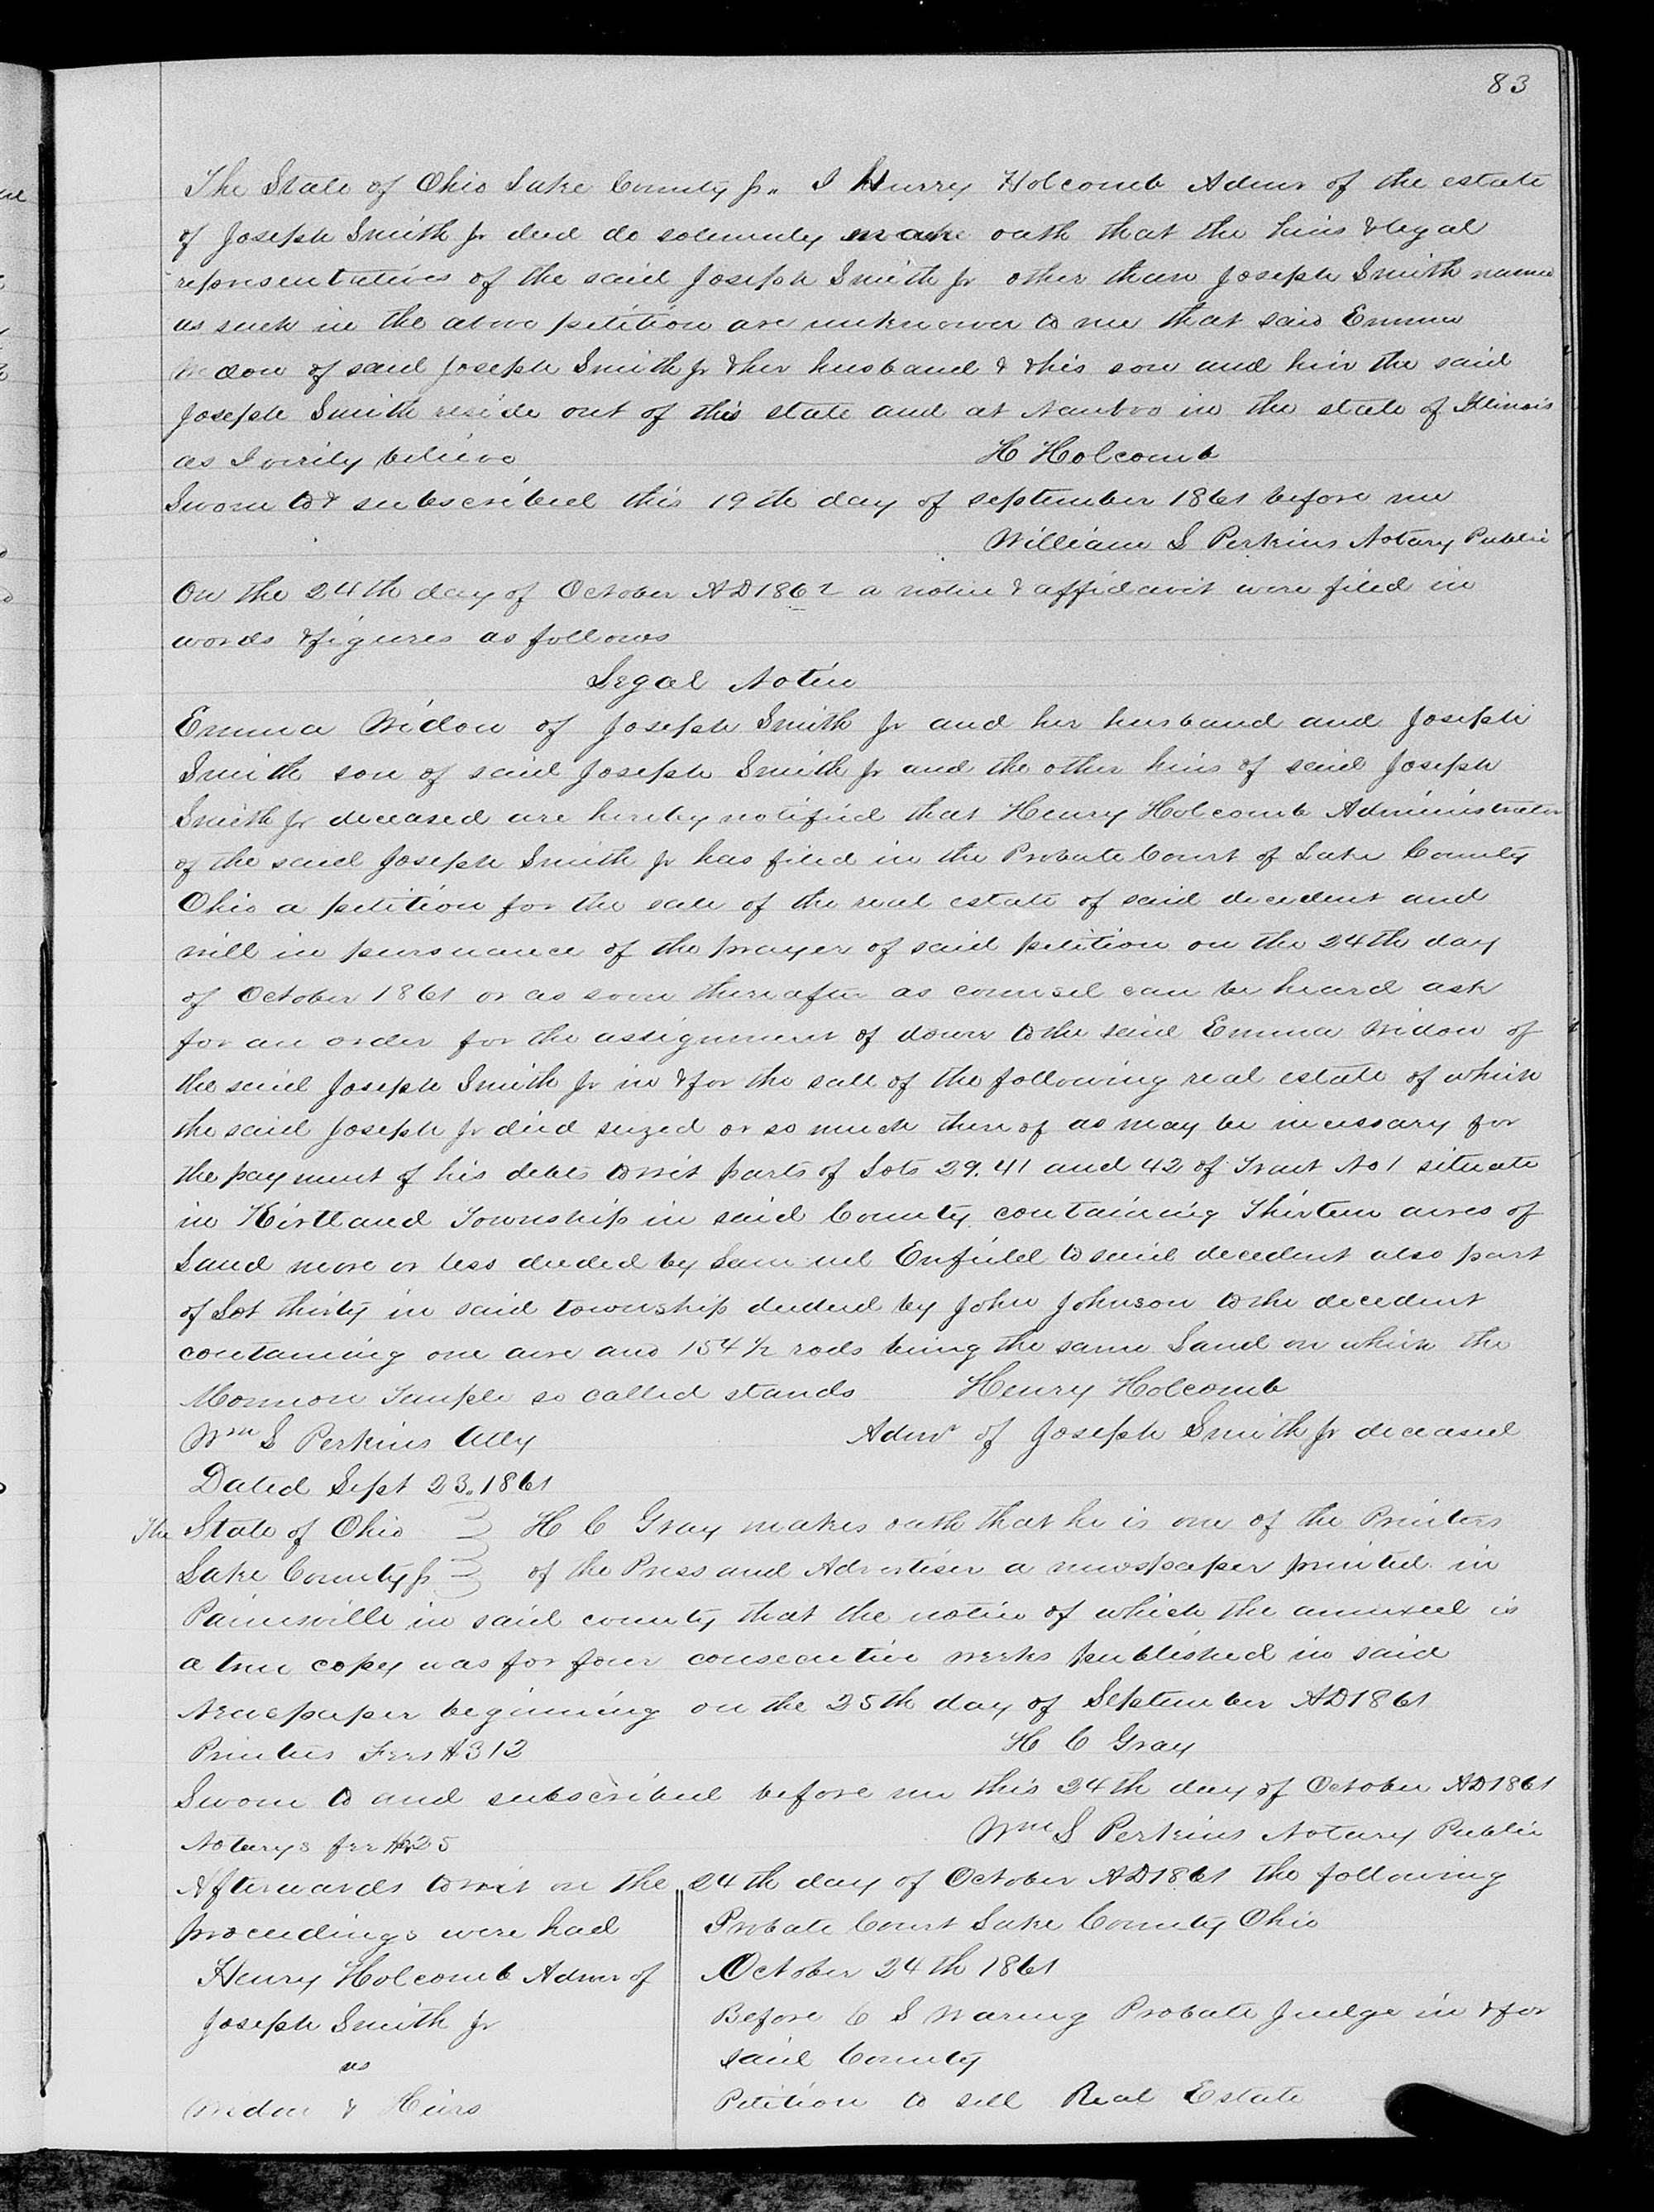 83
The State of Ohio Lake County ss. I Hurry Holcomb Admr of the estate
of Joseph Smith Jr decd do solemnly make oath that the heirs & legal
representatives of the said Joseph Smith Jr other than Joseph Smith name
as such in the above petition are unknown to me that said Emma
Widow of said Joseph Smith Jr & her husband & & his son and heir the said
Joseph Smith reside out of this state and at Nauvoo in the state of Illinois
as I verily believe H Holcomb
Sworn to & subscribed this 19th day of september 1861 before me
William L Perkins Notary Public
On the 24th day of October AD 1862 a notice & affidavit were filed in
words & figures as follows
Legal Notice
Emma Widow of Joseph Smith Jr and her husband and Joseph
Smith son of said Joseph Smith Jr and the other heirs of said Joseph
Smith Jr deceased are hereby notified that Henry Holcomb Administrator
of the said Joseph Smith Jr has filed in the Probate Court of Lake County
Ohio a petition for the sale of the real estate of said decedent and
will in pursuance of the prayer of said petition on the 24th day
of October 1861 or as soon thereafter as counsel can be heard ask
for an order for the assignment of dower to the said Emma Widow of
the said Joseph Smith Jr in & for the sall of the following real estate of which
the said Joseph Jr died seized or so much there of as may be necessary for
the payment of his debts to wit parts of Lots 29. 41 and 42 of Tract No 1 situate
in Kirtland Township in said County containing Thirteen acres of
Land more or less deeded by Samuel Enfield to said decedent also part
of Lot thirty in said township deeded by John Johnson to the decedent
containing one acre and 154 1/2 rods being the same Land on which the
Mormon Temple so called stands Henry Holcomb
Wm L Perkins Atty Admr of Joseph Smith Jr deceased
Dated Sept 23. 1861
The State of Ohio H C Gray makes oath that he is one of the Printers
Lake County ss of the Press and Advertiser a newspaper printed in
Painesville in said county that the notice of which the annexed is
a true copy was for four consecutive weeks published in said
Newspaper beginning on the 25th day of September AD 1861
Printers Fees $312 H C Gray
Sworn to and subscribed before me this 24th day of October AD 1861
Notarys fee $.25 Wm L Perkins Notary Public
Afterwards to wit on the 24th day of October AD 1861 the following
proceedings were had
Henry Holcomb Admr of
Joseph Smith Jr
vs
Widow & Heirs
Probate Court Lake County Ohio
October 24th 1861
Before C S Waring Probate Judge in & for
said County
Petition to sell Real Estate